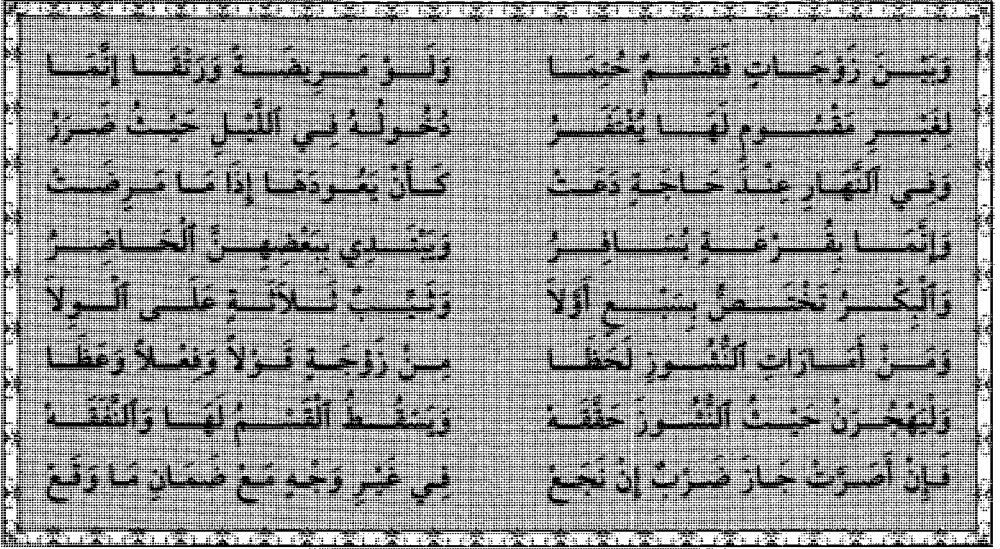 وَبَيْنَ زَوْجَاتٍ فَقَسْمٌ حُتِمَا وَلَوْ مَرِيضَةً وَرَتْقَا إِنَّمَا
لِغَيْرِ مَقْسُومٍ لَهَا يُغْتَفَرُ دُخُولُهُ فِي ٱللَّيْلِ حَيْثُ ضَرَرُ
وَفِي ٱلنَّهَارِ عِنْدَ حَاجَةٍ دَعَتْ كَأَنْ يَعُودَهَا إِذَا مَا مَرِضَتْ
وَإِنَّمَا بِقُرْعَةٍ يُسَافِرُ وَيَبْتَدِي بِبَعْضِهِنَّ ٱلْحَاضِرُ
وَٱلْبِكْرُ تَخْتَصُّ بِسَبْعٍ أَوَّلاَ وَثَيِّبٌ ثَلاَثَةٍ عَلَى ٱلْوِلاَ
وَمَنْ أَمَارَاتِ ٱلنُّشُوزِ لَحَظَا مِنْ زَوْجَةٍ قَوْلاً وَفِعْلاً وَعَظَا
وَلْيَهْجُرَنْ حَيْثُ ٱلنُّشُوزَ حَقَّقَهْ وَيَسْقُطُ ٱلْقَسْمُ لَهَا وَٱلنَّفَقَهْ
فَإِنْ أَصَرَّتْ جَازَ ضَرْبٌ إِنْ نَجَعْ فِي غَيْرِ وَجْهٍ مَعْ ضَمَانِ مَا وَقَعْ